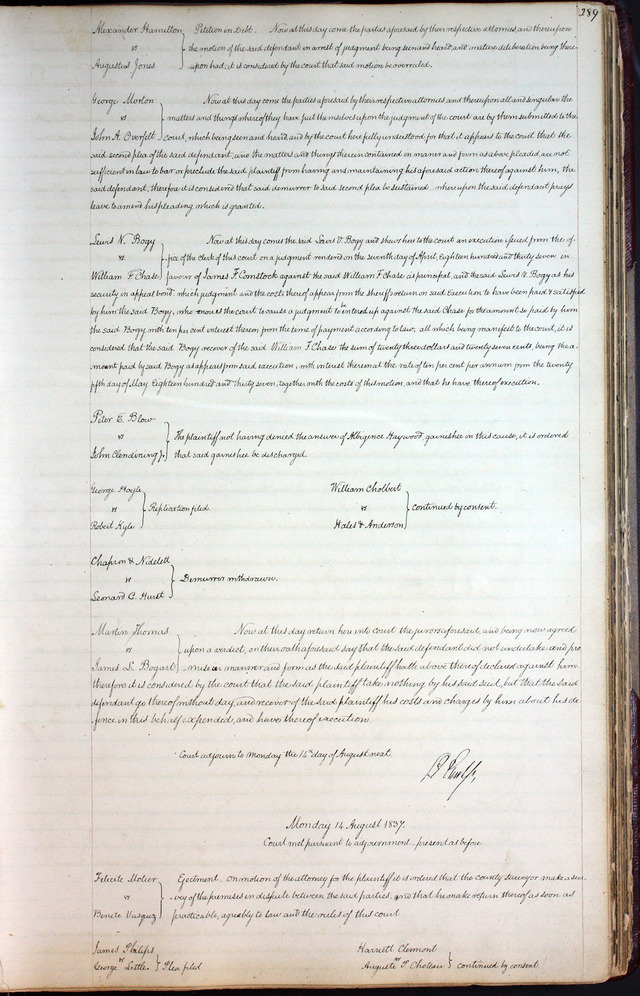 289
Alexander Hamilton } Petition in Debt. Now at this day come the parties aforesaid by their respective attornies, and thereupon
vs the motion of the said defendant in arrest of judgment being seen and heard, and mature deliberation being there-
Augustus Jones upon had, it is considered by the court that said motion be overruled.
George Morton } Now at this day come the parties aforesaid by their respective attornies and thereupon all and singular the
vs matters and things whereof they have put themselves upon the judgment of the court are by them submitted to the
John A. Overfelt court, which being seen and heard and by the court here fully understood for that it appears to the court that the
said second plea of the said defendant, and the matters and things therein contained in manner and form as above pleaded are not
sufficient in law to bar or preclude the said plaintiff from having and maintaining his aforesaid action thereof against him, the
said defendant, therefore it is considered that said demurrer to said second plea be sustained whereupon the said defendant prays
leave to amend his pleading which is granted.
Lewis V. Bogy } Now at this day comes the said Lewis V. Bogy and shews here to the court an execution issued from the of-
vs fice of the Clerk of this court on a judgment rendered on the seventh day of April, Eighteen hundred and thirty seven in
William F. Chase favour of James F. Comstock against the said William F. Chase as principal, and the said Lewis V. Bogy as his
security in appeal bond. which judgment and the costs thereof appear from the Sheriff's return on said Execution to have been paid & satisfied
by him the said Bogy, who moves the court to cause a judgment to be entered up against the said Chase for the amount so paid by him
the said Bogy with ten per cent interest thereon from the time of payment according to law; all which being manifest to the court, it is
considered that the said Bogy recover of the said William F. Chase the sum of twenty three dollars and twenty seven cents, being the a-
mount paid by said Bogy as appears from said execution, with interest thereon at the rate of ten per cent per annum from the twenty
fifth day of May Eighteen hundred and thirty seven, together with the costs of this motion, and that he have thereof execution.
Peter E. Blow
vs } The plaintiff not having denied the answer of Albigence Haywood, garnishee in this cause, it is ordered
John Clendining Jr. that said garnishee be discharged
George Hoyle
vs } Replication filed.
Robert Kyle
William Cholbert
vs } continued by consent.
Hales & Anderson
Chapin & Nidelett
vs } Demurrer withdrawn.
Leonard G. Hurst
Marton Thomas } Now at this day return here into court the jurors aforesaid, and being now agreed
vs upon a verdict, on their oath aforesaid say that the said defendant did not undertake and pro
James L. Bogart mise in manner and form as the said plaintiff hath above thereof declared against him.
therefore it is considered by the court that the said plaintiff take nothing by his said suit, but that the said
defendant go thereof without day, and recover of the said plaintiff his costs and charges by him about his de
fence in this behalf expended, and have thereof execution.
Court adjourn to Monday the 14th day of August next.
Monday 14 August 1837.
Court met pursuant to adjournment present as before
Felicite Motier } Ejectment. On motion of the attorney for the plaintiff it is ordered that the county surveyor make a sur-
vs vey of the premises in dispute between the said parties, and that he make return thereof as soon as
Benito Vasquez practicable, agreeably to law and the rules of this court
James Philips
vs } Plea filed
George Little.
Harriett Clermont
vs } continued by consent.
Auguste P. Choteau